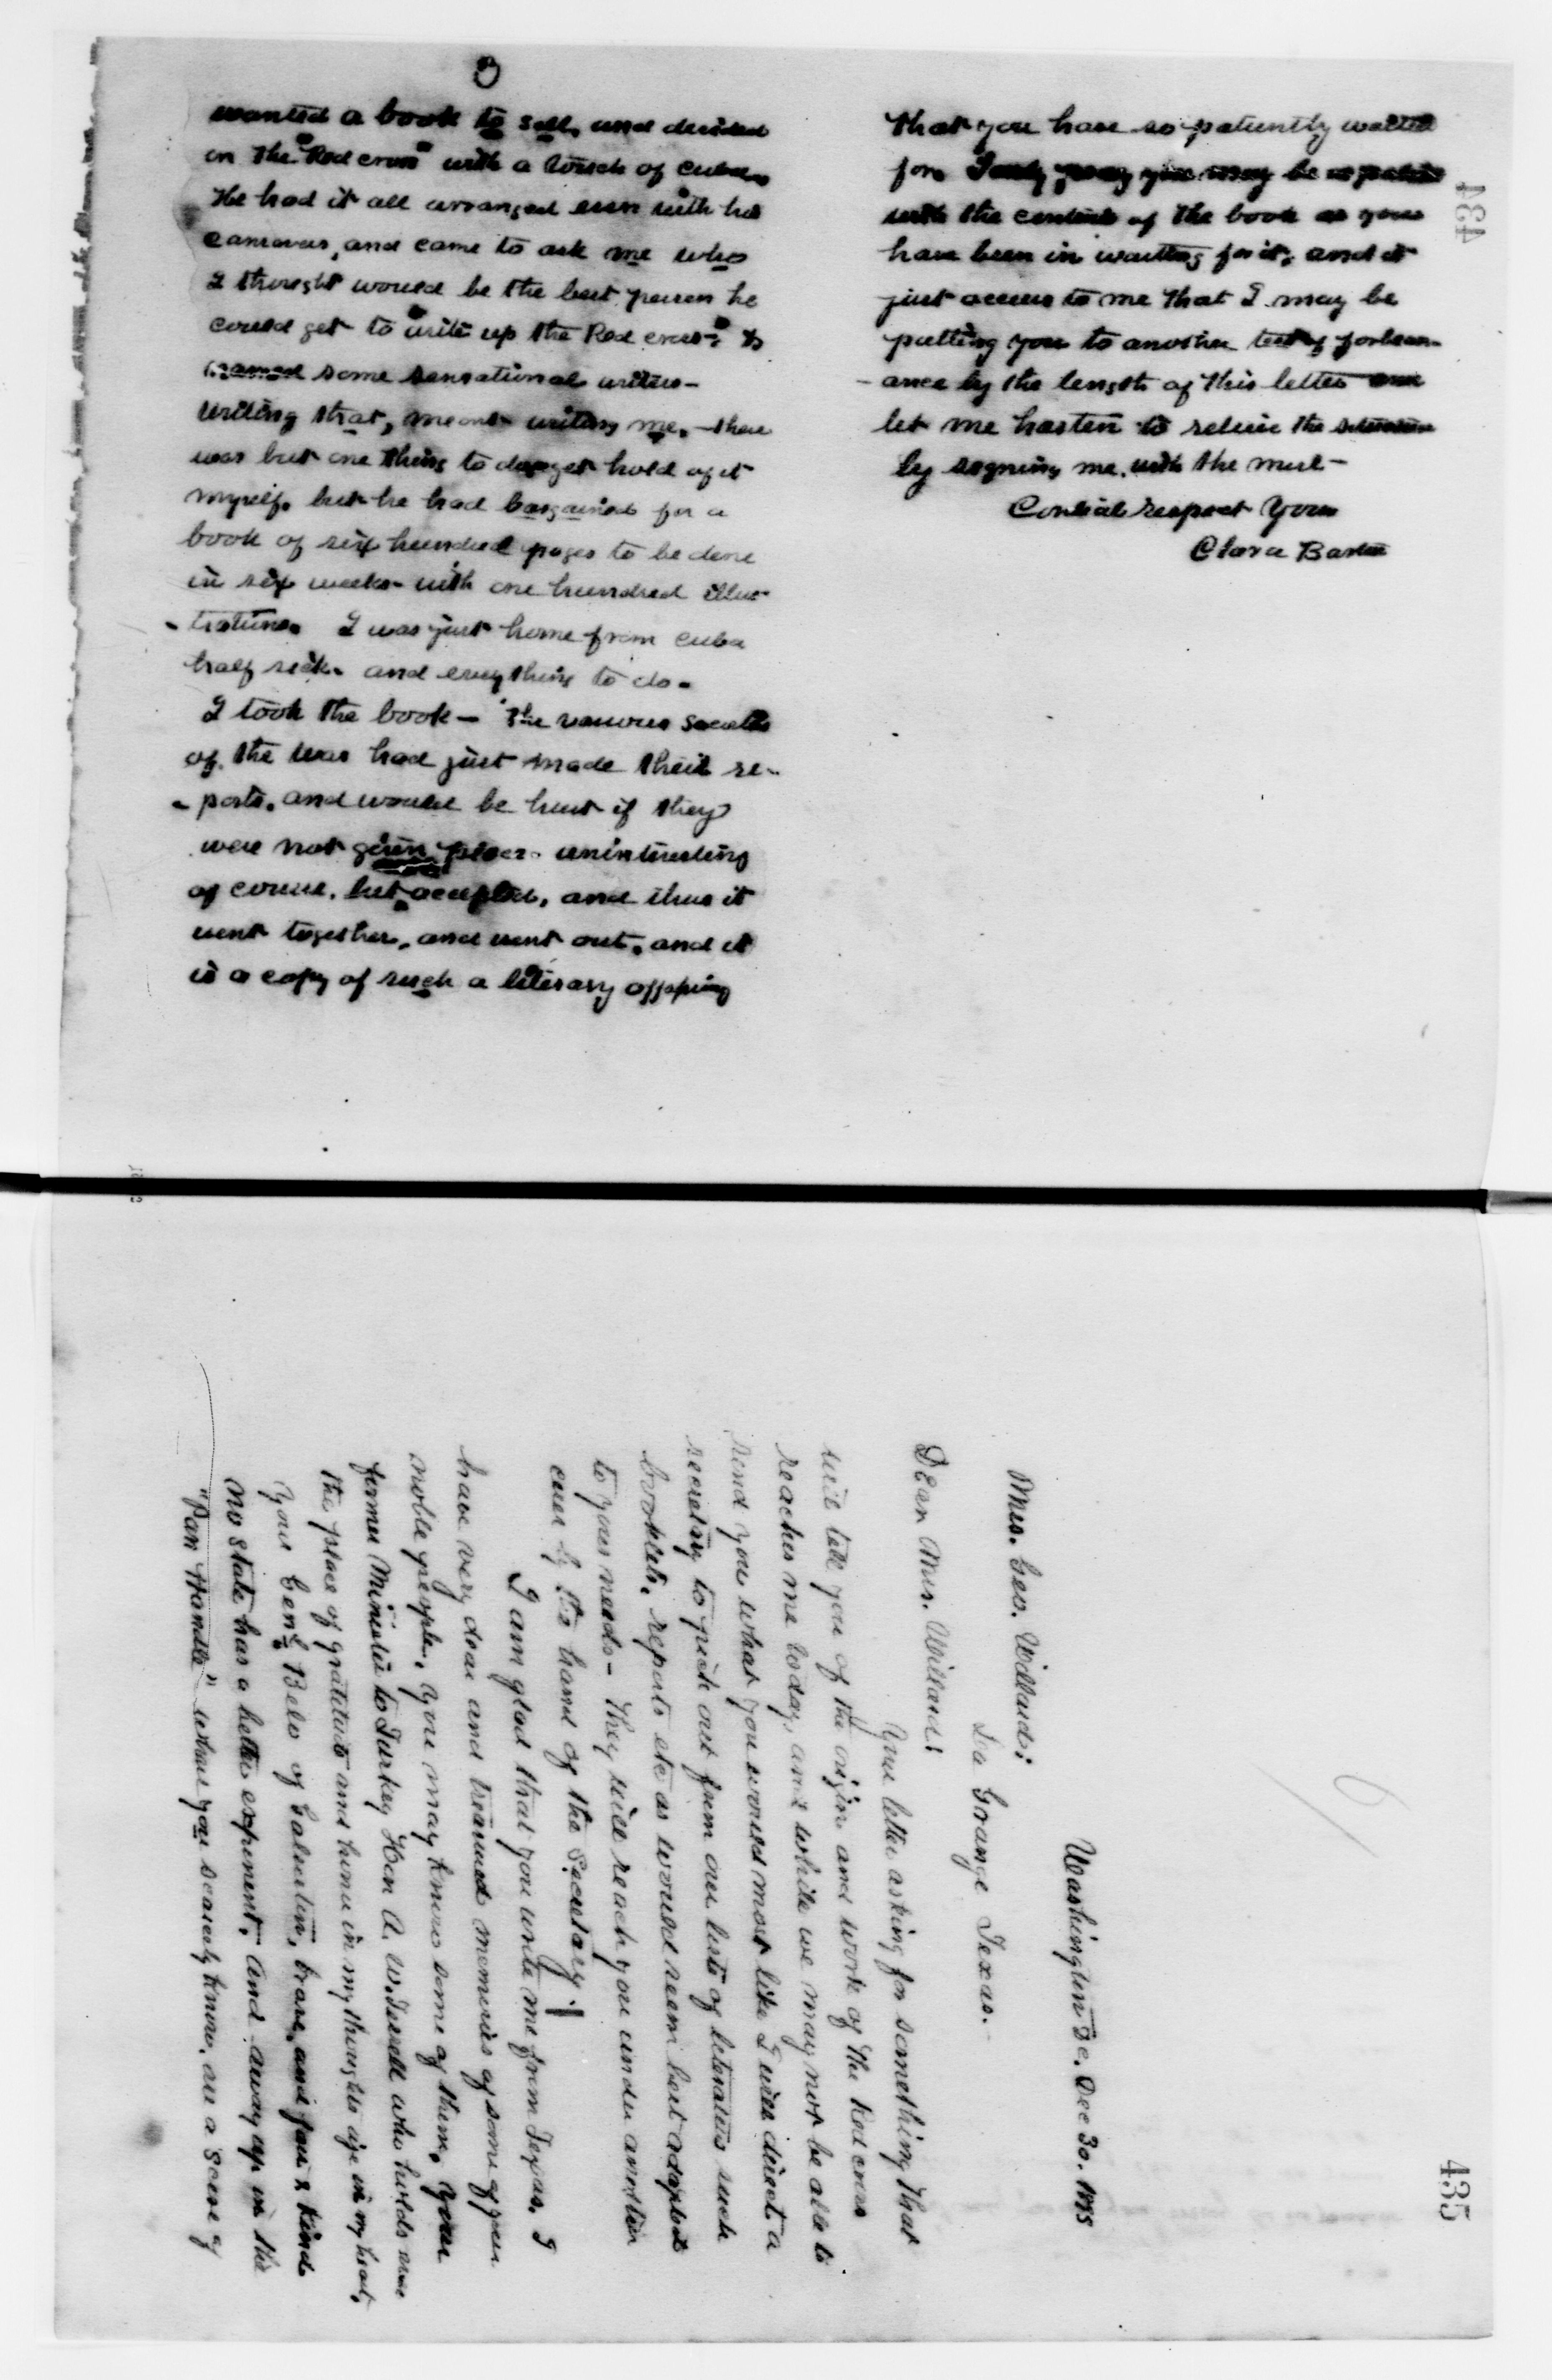 3
wanted a book to sell, and decided
on the "Red cross" with a touch of Cuba.
He had it all arranged even with his
canvassers, and came to ask me who
I thought would be the best person he
could get to "write up the Red cross", &
named some sensational writers -
Writing that, meant writing me, - there
was but one thing to do, get hold of it
myself. but he had bargained for a
book of six hundred pages to be done
in six weeks - with one hundred illus-
- trations. I was just home from Cuba
half sick - and everything to do -
I took the book - The various societies
of the war had just made their re-
- ports, and would be hurt if they
were not given place - uninteresting
of course, but accepted, and thus it
went together, and went out, and it
is a copy of such a literary offspring
434
that you have so patiently waited
for. I only pray you may be as patient
with the contents of the book as you
have been in waiting for it, and it
just occurs to me that I may be
putting you to another test of forbear-
- ance by the length of this letter
let me hasten to relieve the
by signing me, with the most -
Cordial respect Yours
Clara Barton
435
Washington D.C. Dec 30.
Mrs. Geo. Willard:
La Grange Texas. -
Dear Mrs. Willard:
Your letter asking for something that
will tell you of the origin and work of the Red cross
reaches me today, and while we may not be able to
send you what you would most like I will direct a
secretary to pick out from our lists of literature such
booklets, reports etc as would seem best adapted
to your needs - They will reach you under another
cover by the hand of the Secretary.
I am glad that you write me from Texas. I
have very dear and treasured memories of some of your
noble people. You may know some of them. Your
former Minister to Turkey Hon A. W. Terrell who holds ever
the place of gratitude and honor in my thoughts
Your Genl. Belo of Galveston, brave, and fair & kind
no state has a better exponent. And away up in the
"Pan Handle" where you scarcely know, are a score of